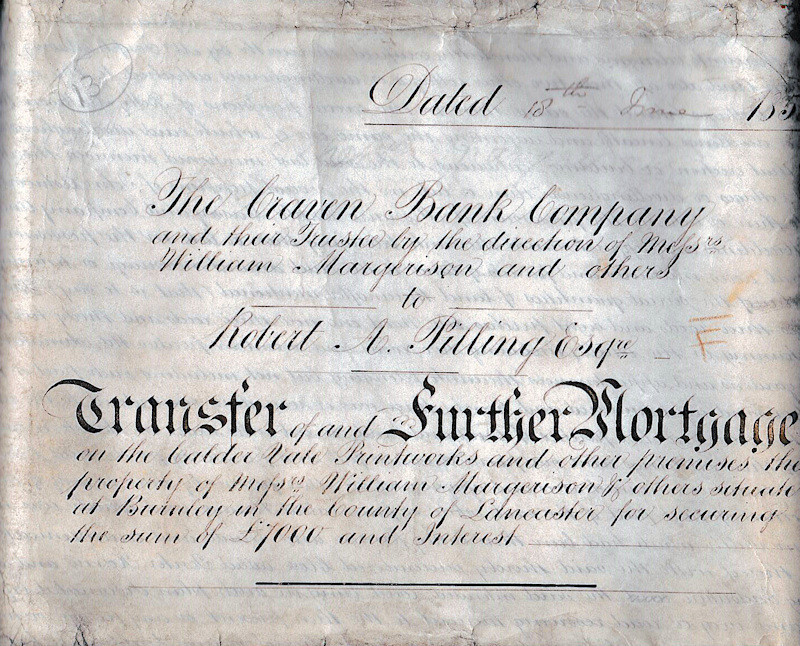 134
Dated 18th June 185
The Craven Bank Company
and their Trustee by the direction of Messrs
William Margerison and others
to
Robert A. Pilling Esqre
F
Transfer of and Further Mortgage
on the Calder Vale Printworks and other premises the
property of Messrs William Margerison & others situate
at Burnley in the County of Lancaster for securing
the sum of £7000 and Interest